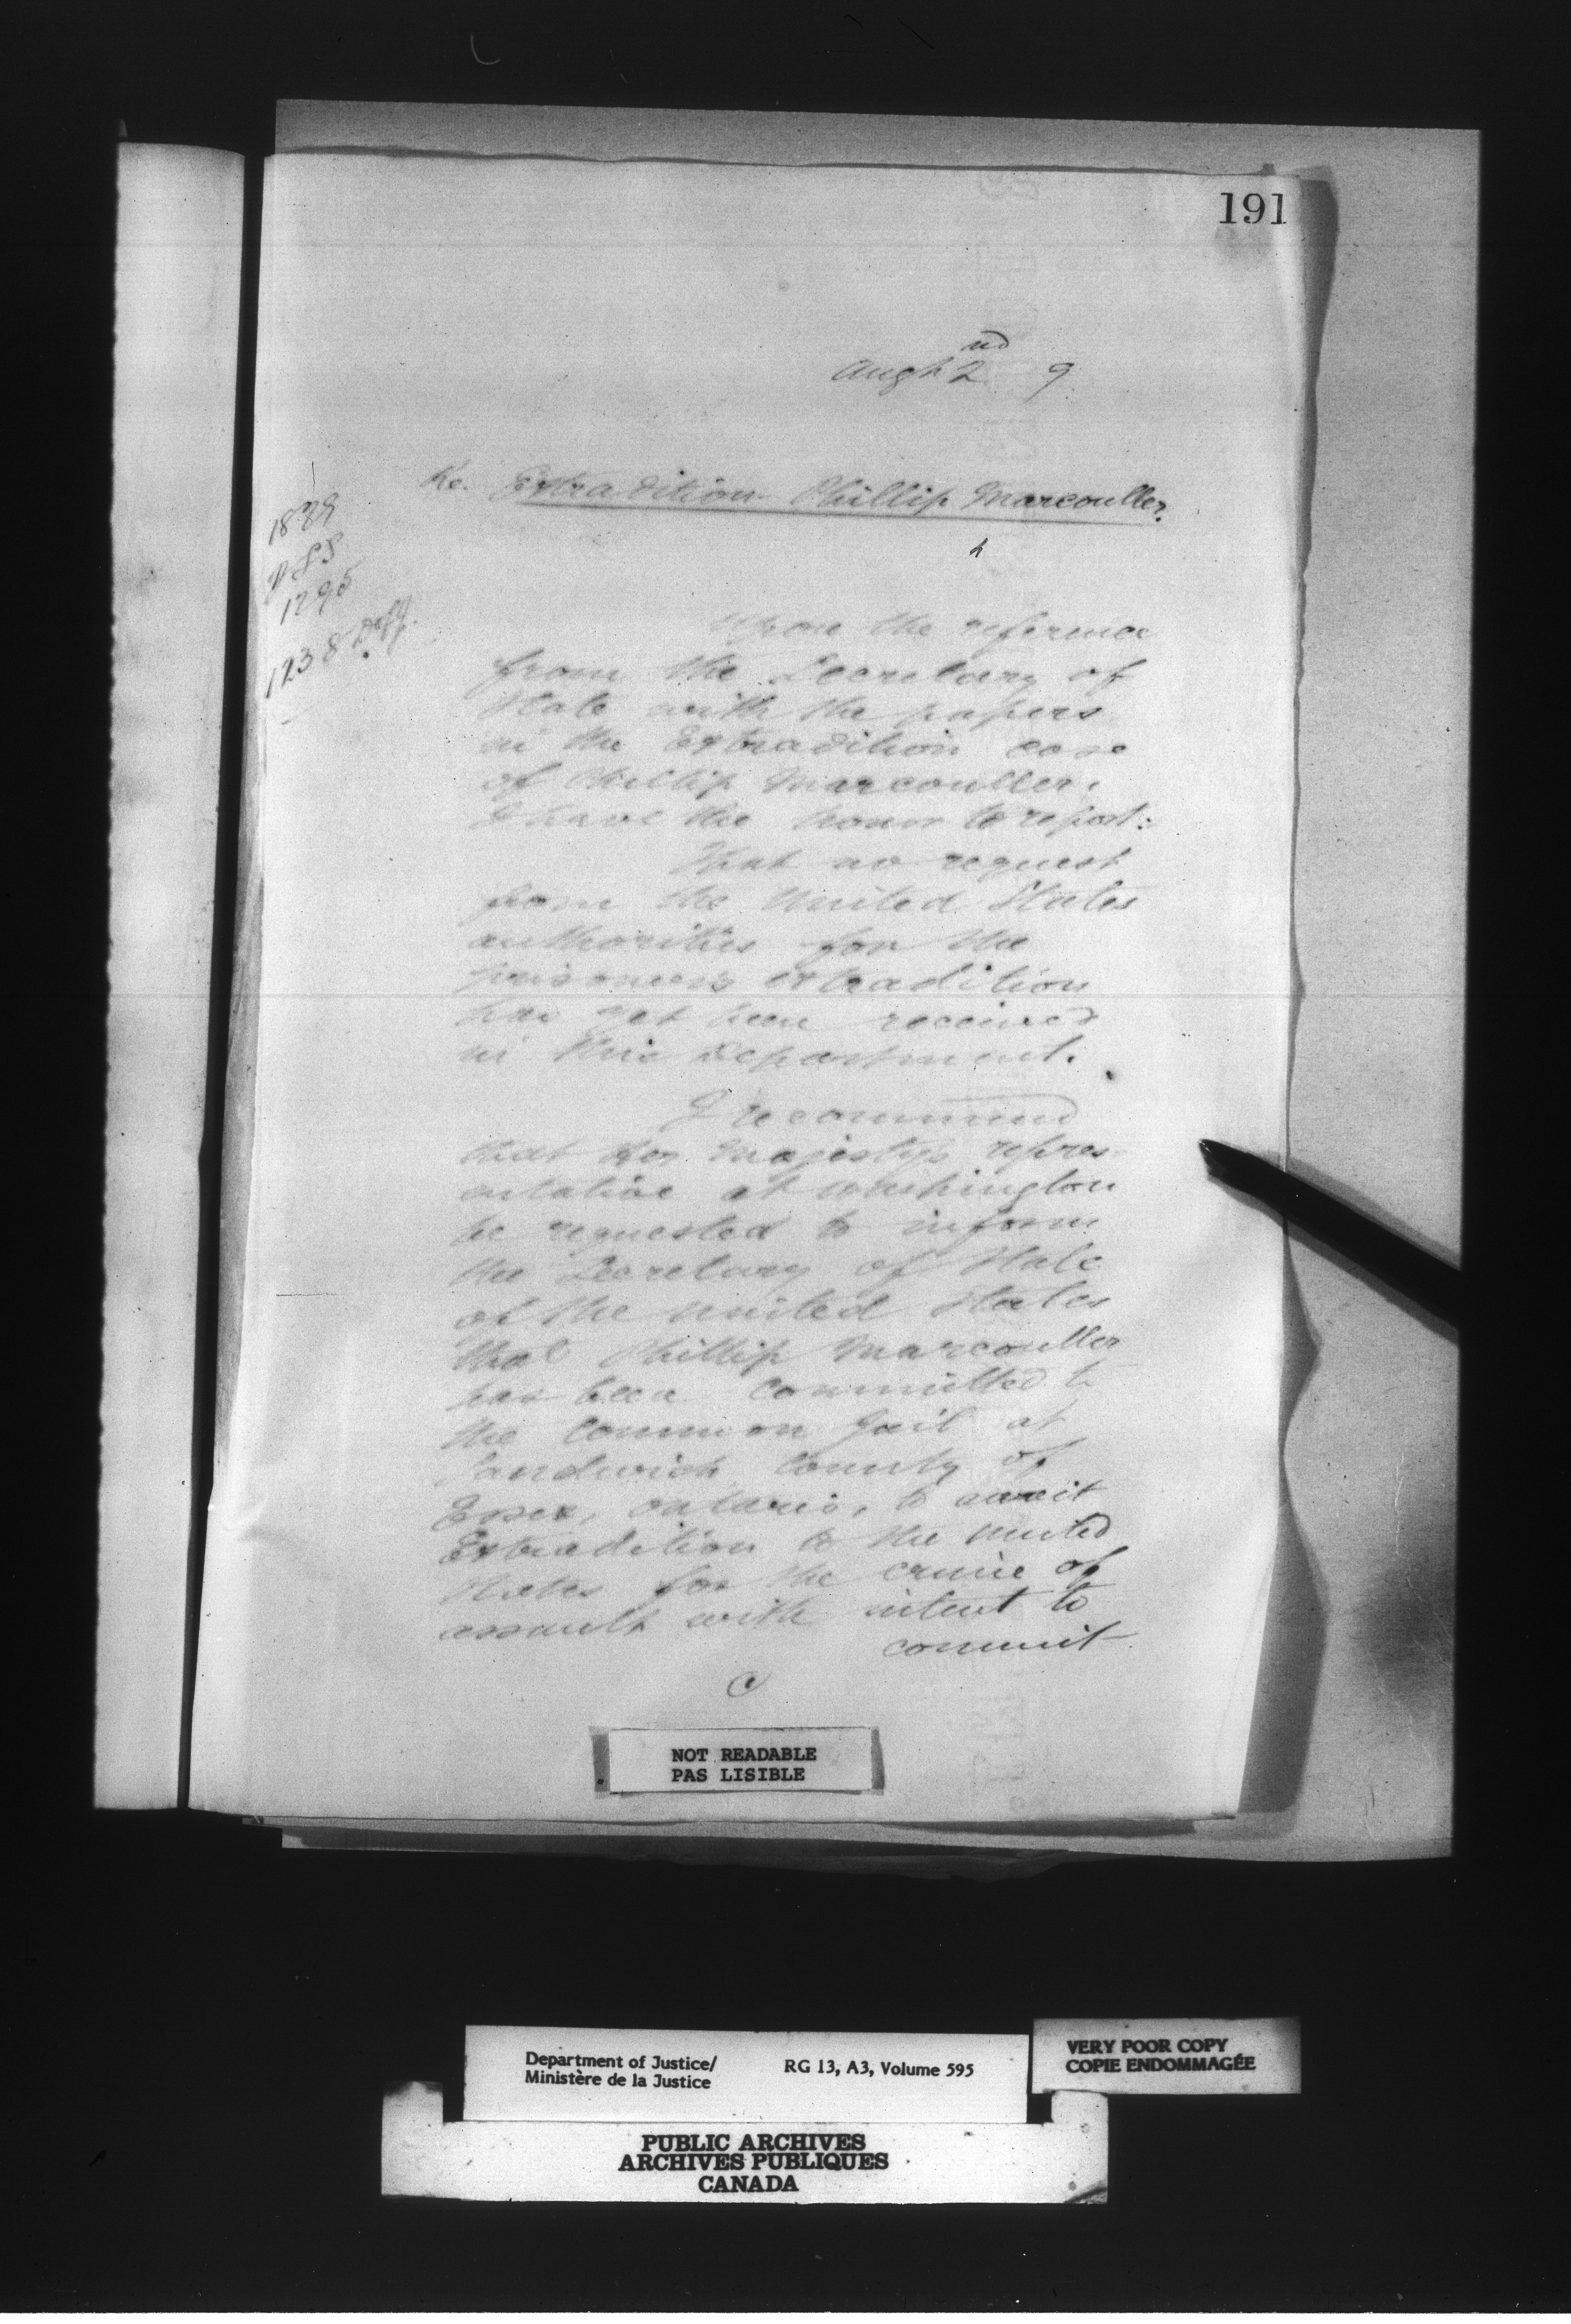 191
Augt 2nd 9
Re. Extradition Phillip Marcouller.
1889
1295
1238
Upon the reference
from the Secretary of
State with the papers
in the Extradition case
of Phillip Marcouller.
I have the honor to report:
That no request
from the United States
authorities for the
prisoner's extradition
has yet been received
in this Department.
I recommend
that Her Majesty's repres-
entative at Washington
be requested to inform
the Secretary of State
of the United States
that Phillip Marcouller
has been committed to
the Common Gail at
Sandwich County of
Essex, Ontario, to await
Extradition to the United
States for the crime of
assault with intent to
commit
NOT READABLE
PAS LISIBLE
Department of Justice/
Ministère de la Justice
RG 13, A3, Volume 595
VERY POOR COPY
COPIE ENDOMMAGÉE
PUBLIC ARCHIVES
ARCHIVES PUBLIQUES
CANADA